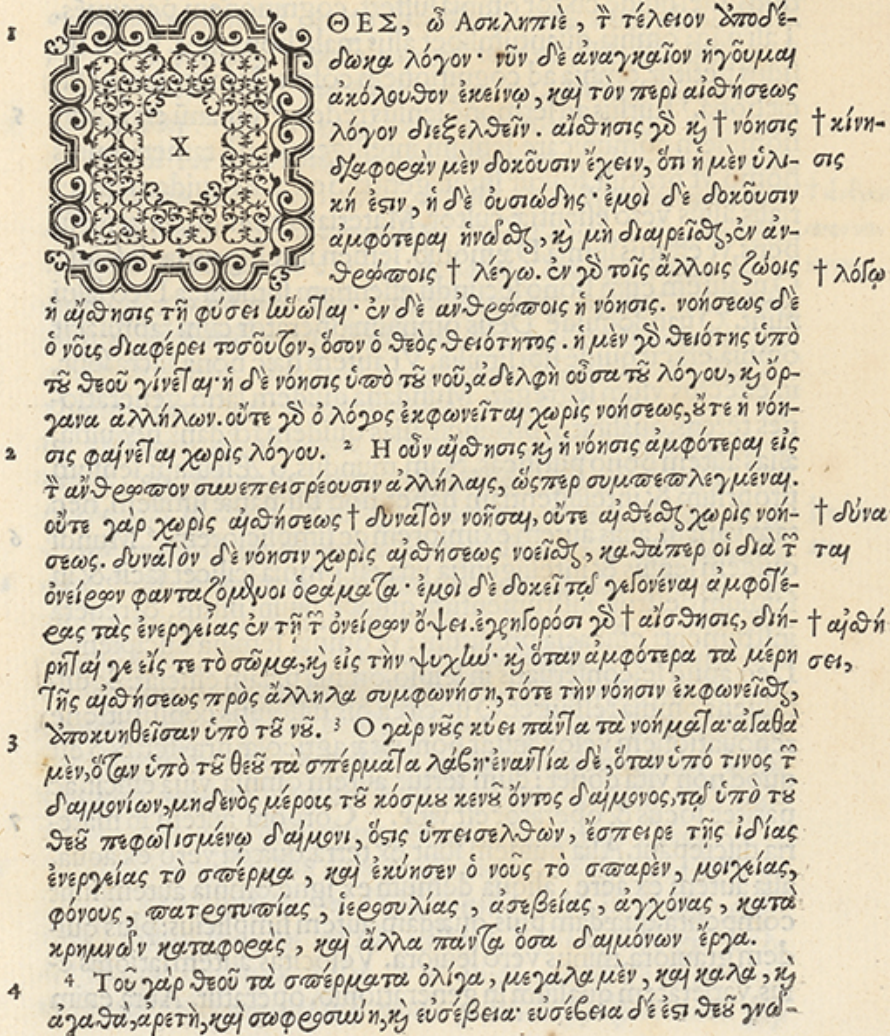 1 Χ ΘΕΣ, ὦ Ασκληπιὲ, τὸν τέλειον ἀποδέ-
δωκα λόγον· νῦν δὲ ἀναγκαῖον ἡγοῦμαι
ἀκόλουθον ἐκείνῳ, καὶ τὸν περὶ αἰσθήσεως
λόγον διεξελθεῖν. αἴσθησις γὰρ καὶ † νόησις † κίνη-
διαφορὰν μὲν δοκοῦσιν ἔχειν, ὅτι ἡ μὲν ὑλι- σις
κή ἐστιν, ἡ δὲ οὐσιώδης· ἐμοὶ δὲ δοκοῦσιν
ἀμφότεραι ἡνῶσθαι, καὶ μὴ διαιρεῖσθαι, ἐν ἀν-
θρώποις † λέγω. ἐν γὰρ τοῖς ἄλλοις ζώοις † λόγῳ
ἡ αἴσθησις τῇ φύσει ἥνωται· ἐν δὲ ἀνθρώποις ἡ νόησις. νοήσεως δὲ
ὁ νοῦς διαφέρει τοσοῦτον, ὅσον ὁ θεὸς θειότητος. ἡ μὲν γὰρ θειότης ὑπὸ
τοῦ θεοῦ γίνεται· ἡ δὲ νόησις ὑπὸ τοῦ νοῦ, ἀδελφὴ οὖσα τοῦ λόγου, καὶ ὄρ-
γανα ἀλλήλων. οὔτε γὰρ ὁ λόγος ἐκφωνεῖται χωρὶς νοήσεως, οὔτε ἡ νόη-
2 σις φαίνεται χωρὶς λόγου. ² Η οὖν αἴσθησις καὶ ἡ νόησις ἀμφότεραι εἰς
τὸν ἄνθρωπον συνεπεισρέουσιν ἀλλήλαις, ὥσπερ συμπεπλεγμέναι.
οὔτε γὰρ χωρὶς αἰσθήσεως † δυνατὸν νοῆσαι, οὔτε αἰσθέσθαι χωρὶς νοή- † δύνα
σεως. δυνατὸν δὲ νόησιν χωρὶς αἰσθήσεως νοεῖσθαι, καθάπερ οἱ διὰ τῶν ται
ὀνείρων φανταζόμενοι ὁράματα· ἐμοὶ δὲ δοκεῖ τῷ γεγονέναι ἀμφοτέ-
ρας τὰς ἐνεργείας ἐν τῇ τῶν ὀνείρων ὄψει. ἐγρηγορόσι γὰρ † αἴσθησις, διή- † αἰσθή
ρηταί γε εἴς τε τὸ σῶμα, καὶ εἰς τὴν ψυχήν· καὶ ὅταν ἀμφότερα τὰ μέρη σει,
τῆς αἰσθήσεως πρὸς ἄλληλα συμφωνήσῃ, τότε τὴν νόησιν ἐκφωνεῖσθαι,
3 ἀποκυηθεῖσαν ὑπὸ τοῦ νοῦ. ³ Ο γὰρ νοῦς κύει πάντα τὰ νοήματα· ἀγαθὰ
μὲν, ὅταν ὑπὸ τοῦ θεοῦ τὰ σπέρματα λάβῃ· ἐναντία δὲ, ὅταν ὑπό τινος τῶν
δαιμονίων, μηδενὸς μέροις τοῦ κόσμου κενοῦ ὄντος δαίμονος, τῷ ὑπὸ τοῦ
θεοῦ πεφωτισμένῳ δαίμονι, ὅστις ὑπεισελθὼν, ἔσπειρε τῆς ἰδίας
ἐνεργείας τὸ σπέρμα, καὶ ἐκύησεν ὁ νοῦς τὸ σπαρὲν, μοιχείας,
φόνους, πατροτυπίας, ἱεροσυλίας, ἀσεβείας, ἀγχόνας, κατὰ
κρημνῶν καταφορὰς, καὶ ἄλλα πάντα ὅσα δαιμόνων ἔργα.
4 ⁴ Τοῦ γὰρ θεοῦ τὰ σπέρματα ὀλίγα, μεγάλα μὲν, καὶ καλὰ, καὶ
ἀγαθὰ, ἀρετὴ, καὶ σωφροσύνη, καὶ εὐσέβεια· εὐσέβεια δέ ἐστι θεοῦ γνῶ-